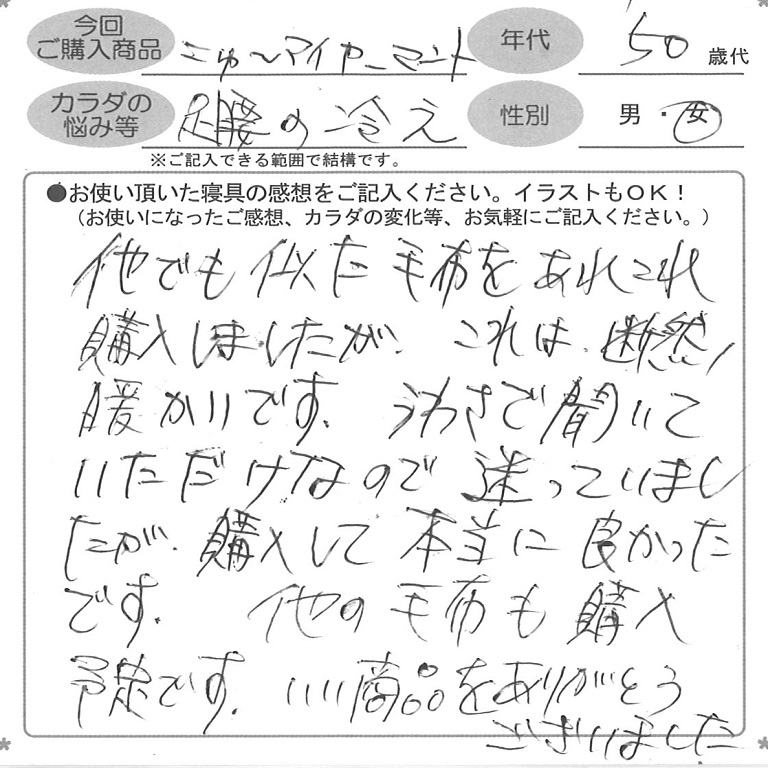 今回
ご購入商品 にゅ〜マイヤーマント 年代 50 歳代
カラダの
悩み等 足腰の冷え 性別 男・女
※ご記入できる範囲で結構です。
●お使い頂いた寝具の感想をご記入ください。イラストもOK!
(お使いになったご感想、カラダの変化等、お気軽にご記入ください。)
他でも似た毛布をあれこれ
購入しましたが、これは、断然
暖かいです。うわさで聞いて
いただけなので迷っていまし
たが、購入して本当に良かった
です。他の毛布も購入
予定です。いい商品をありがとう
ございました